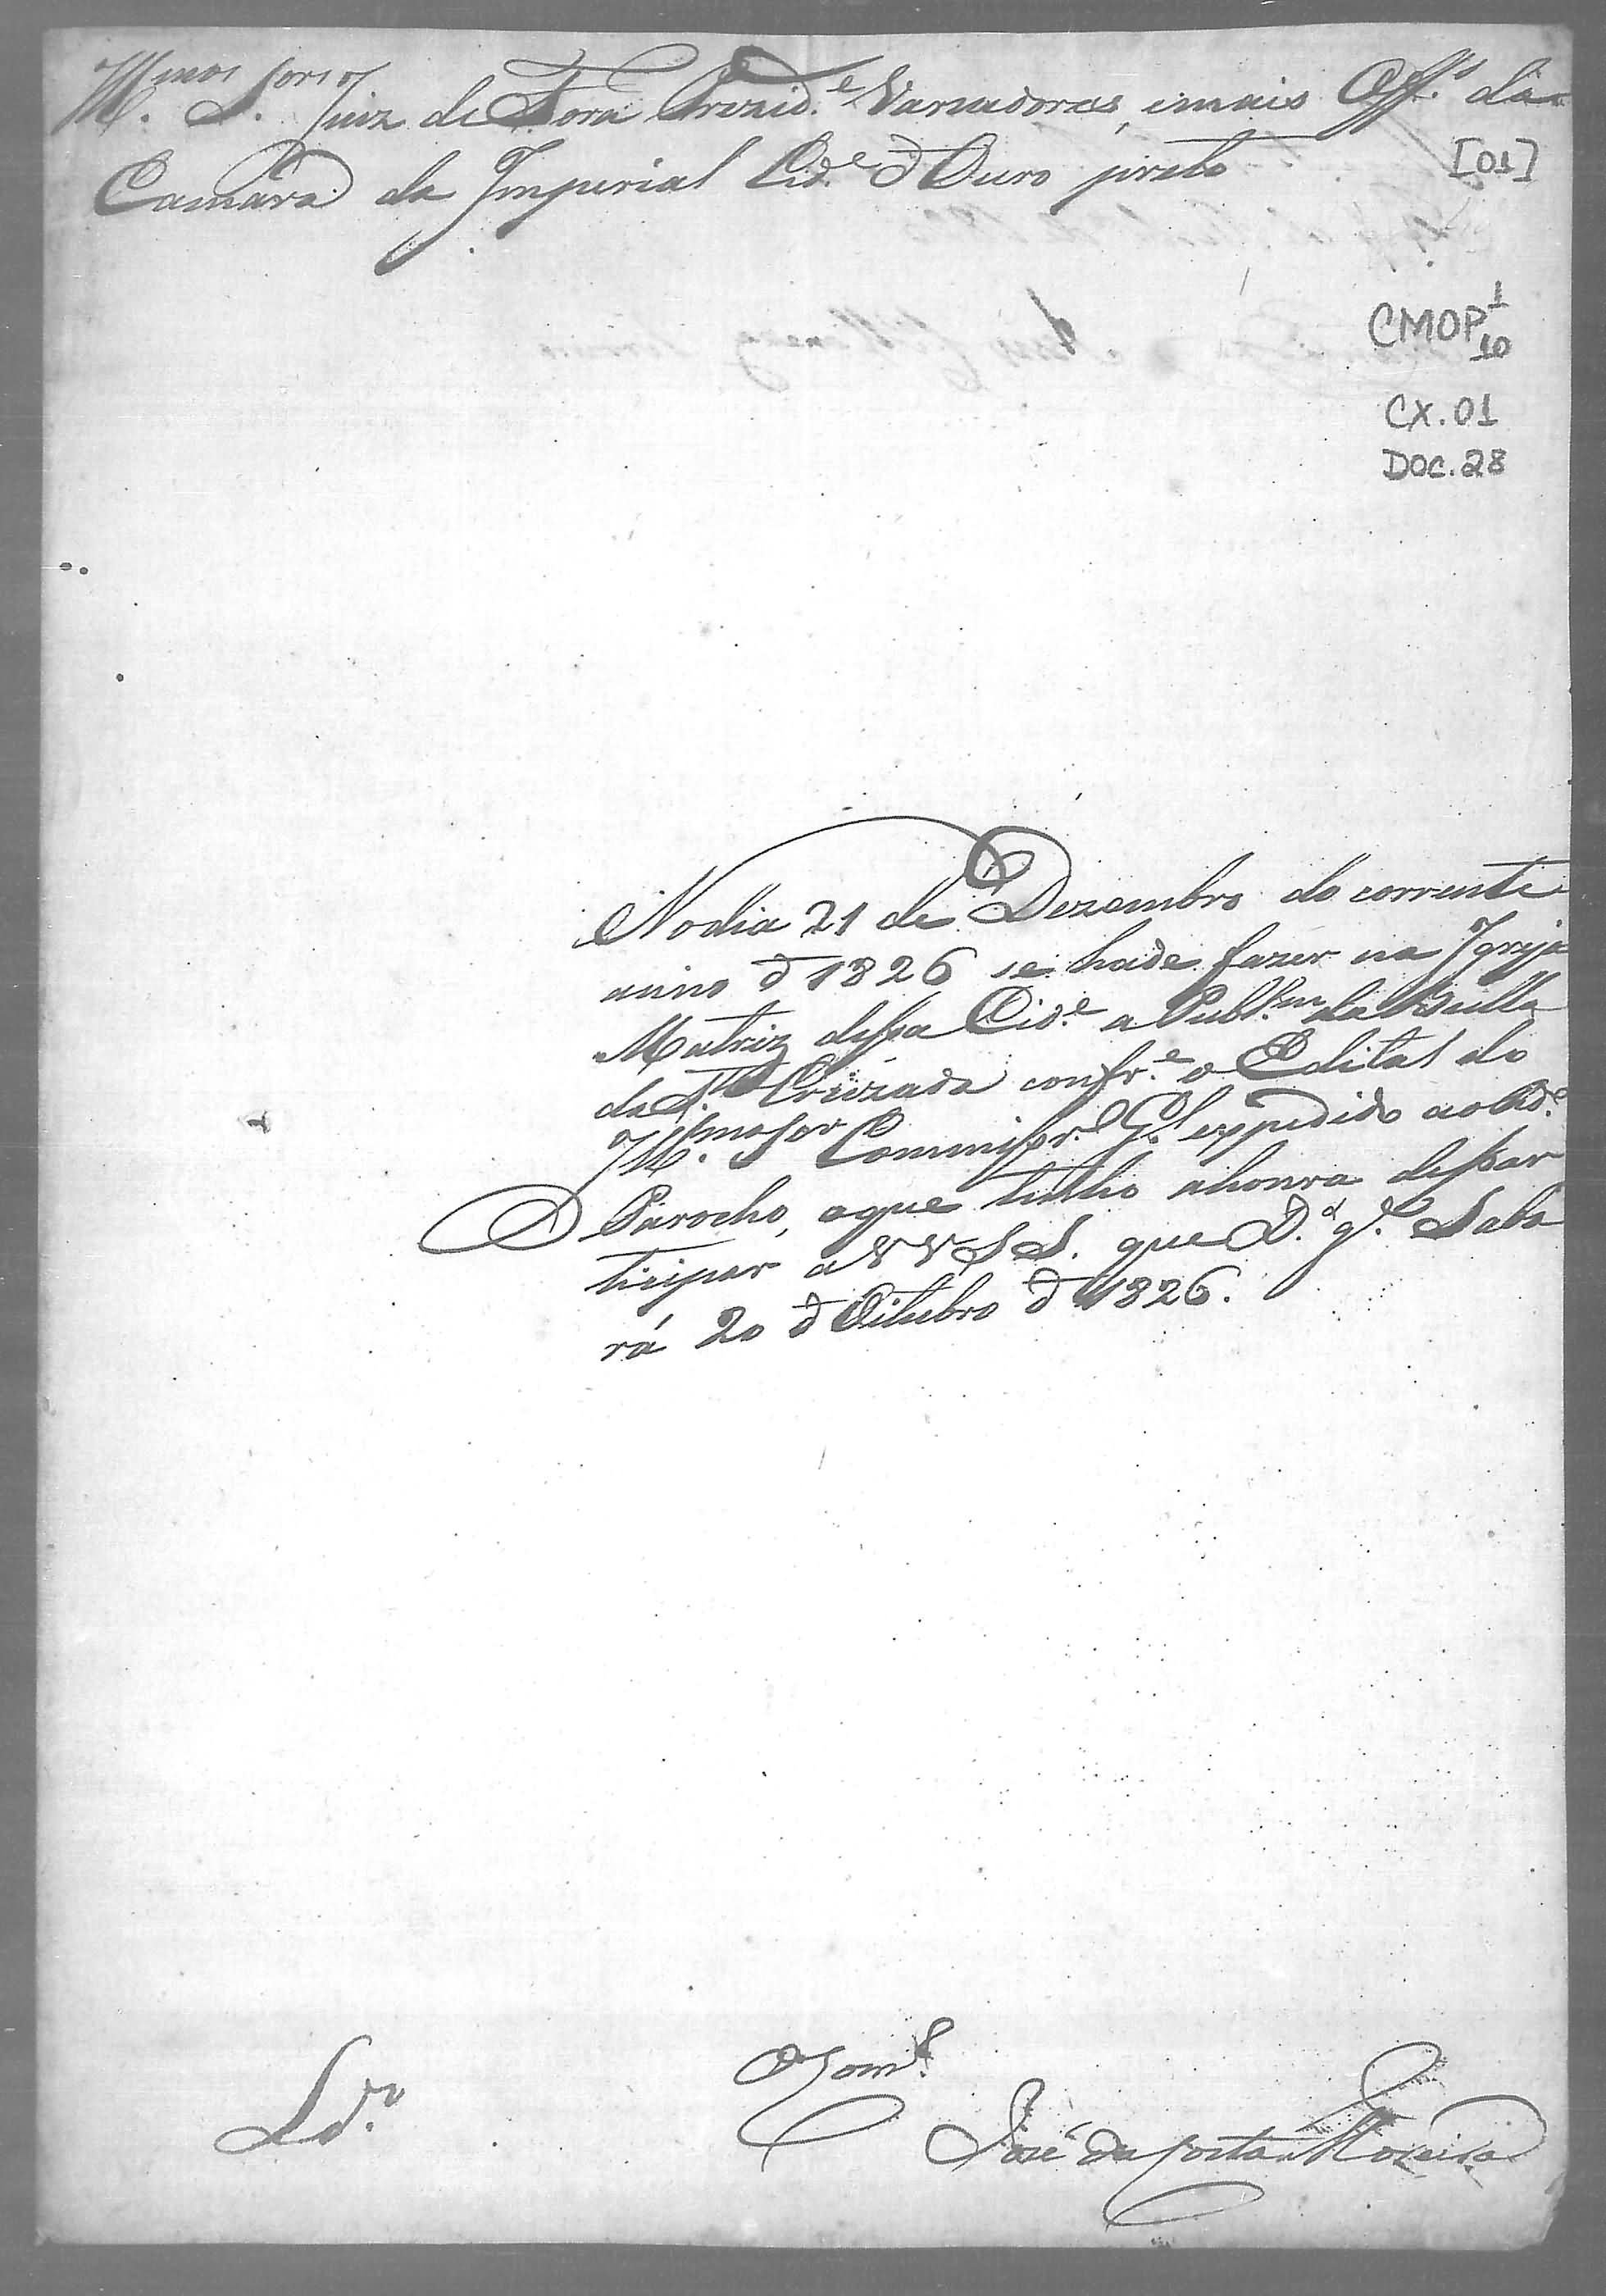 Ill.mos S.ores Juiz de Fora Prezid.e Variadores, emais Off.s da
Camara da Imperial Cid.e d Ouro preto
[01]
CMOP 1
10
CX.01
DOC.28
Nodia 21 de Dezembro do corrente
anno d 1826 se hade fazer na Igreja
Matriz dessa Cid.e a Publ.am da Bulla
da S.ta Cruzada confr.e o Edital do
Ill.mo Sor Commissr.o G.l expedido ao Rd.o
Parocho, oque tenho ahonra depar
ticipar a VV SS. que D.s g.e Saba
rá 20 d Oitubro d 1826.
José da Costa Moreira